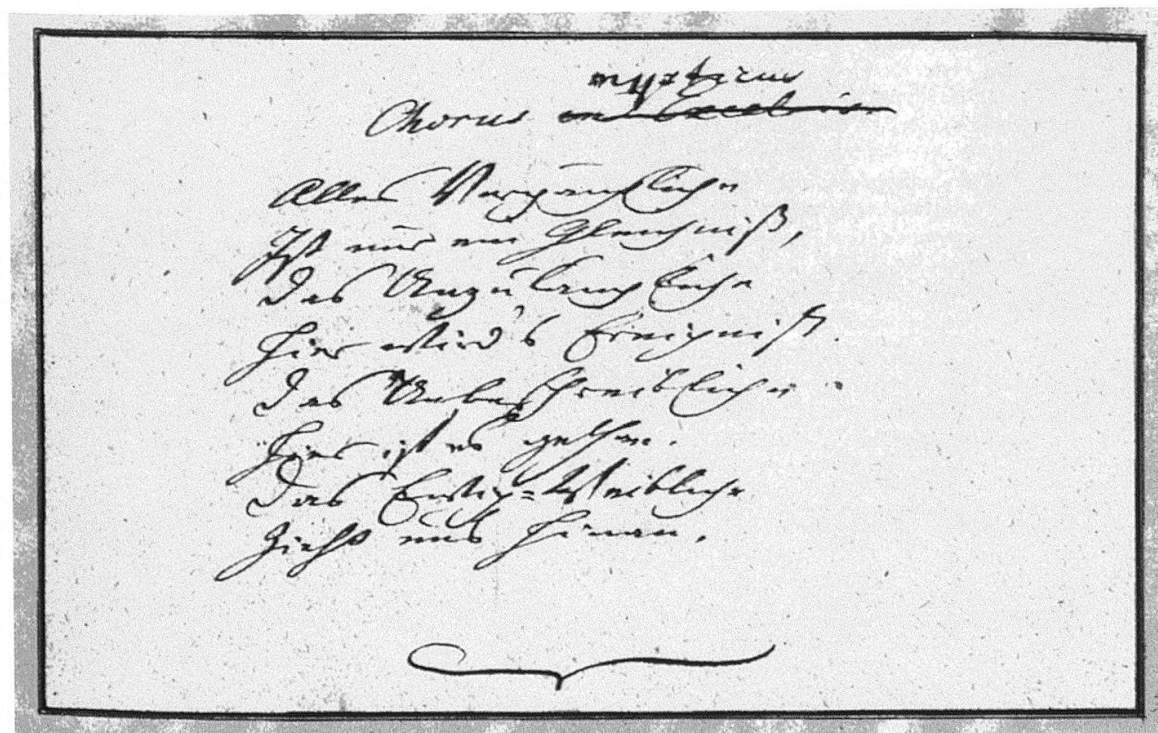 mysticus
Chorus in Excelsis
Alles Vergängliche
Ist nur ein Gleichniß,
Das Unzulängliche
Hier wird's Ereigniß.
Das Unbeschreibliche
Hier ist es gethan.
Das Ewig=Weibliche
Zieht uns hinan.